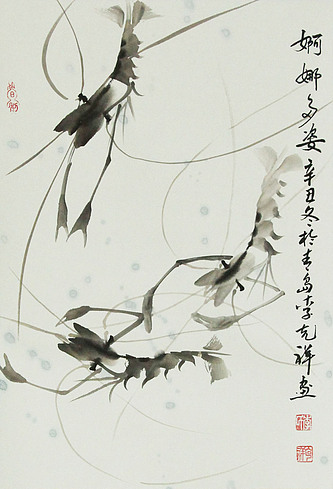 婀娜多姿辛丑冬于青岛李克祥画